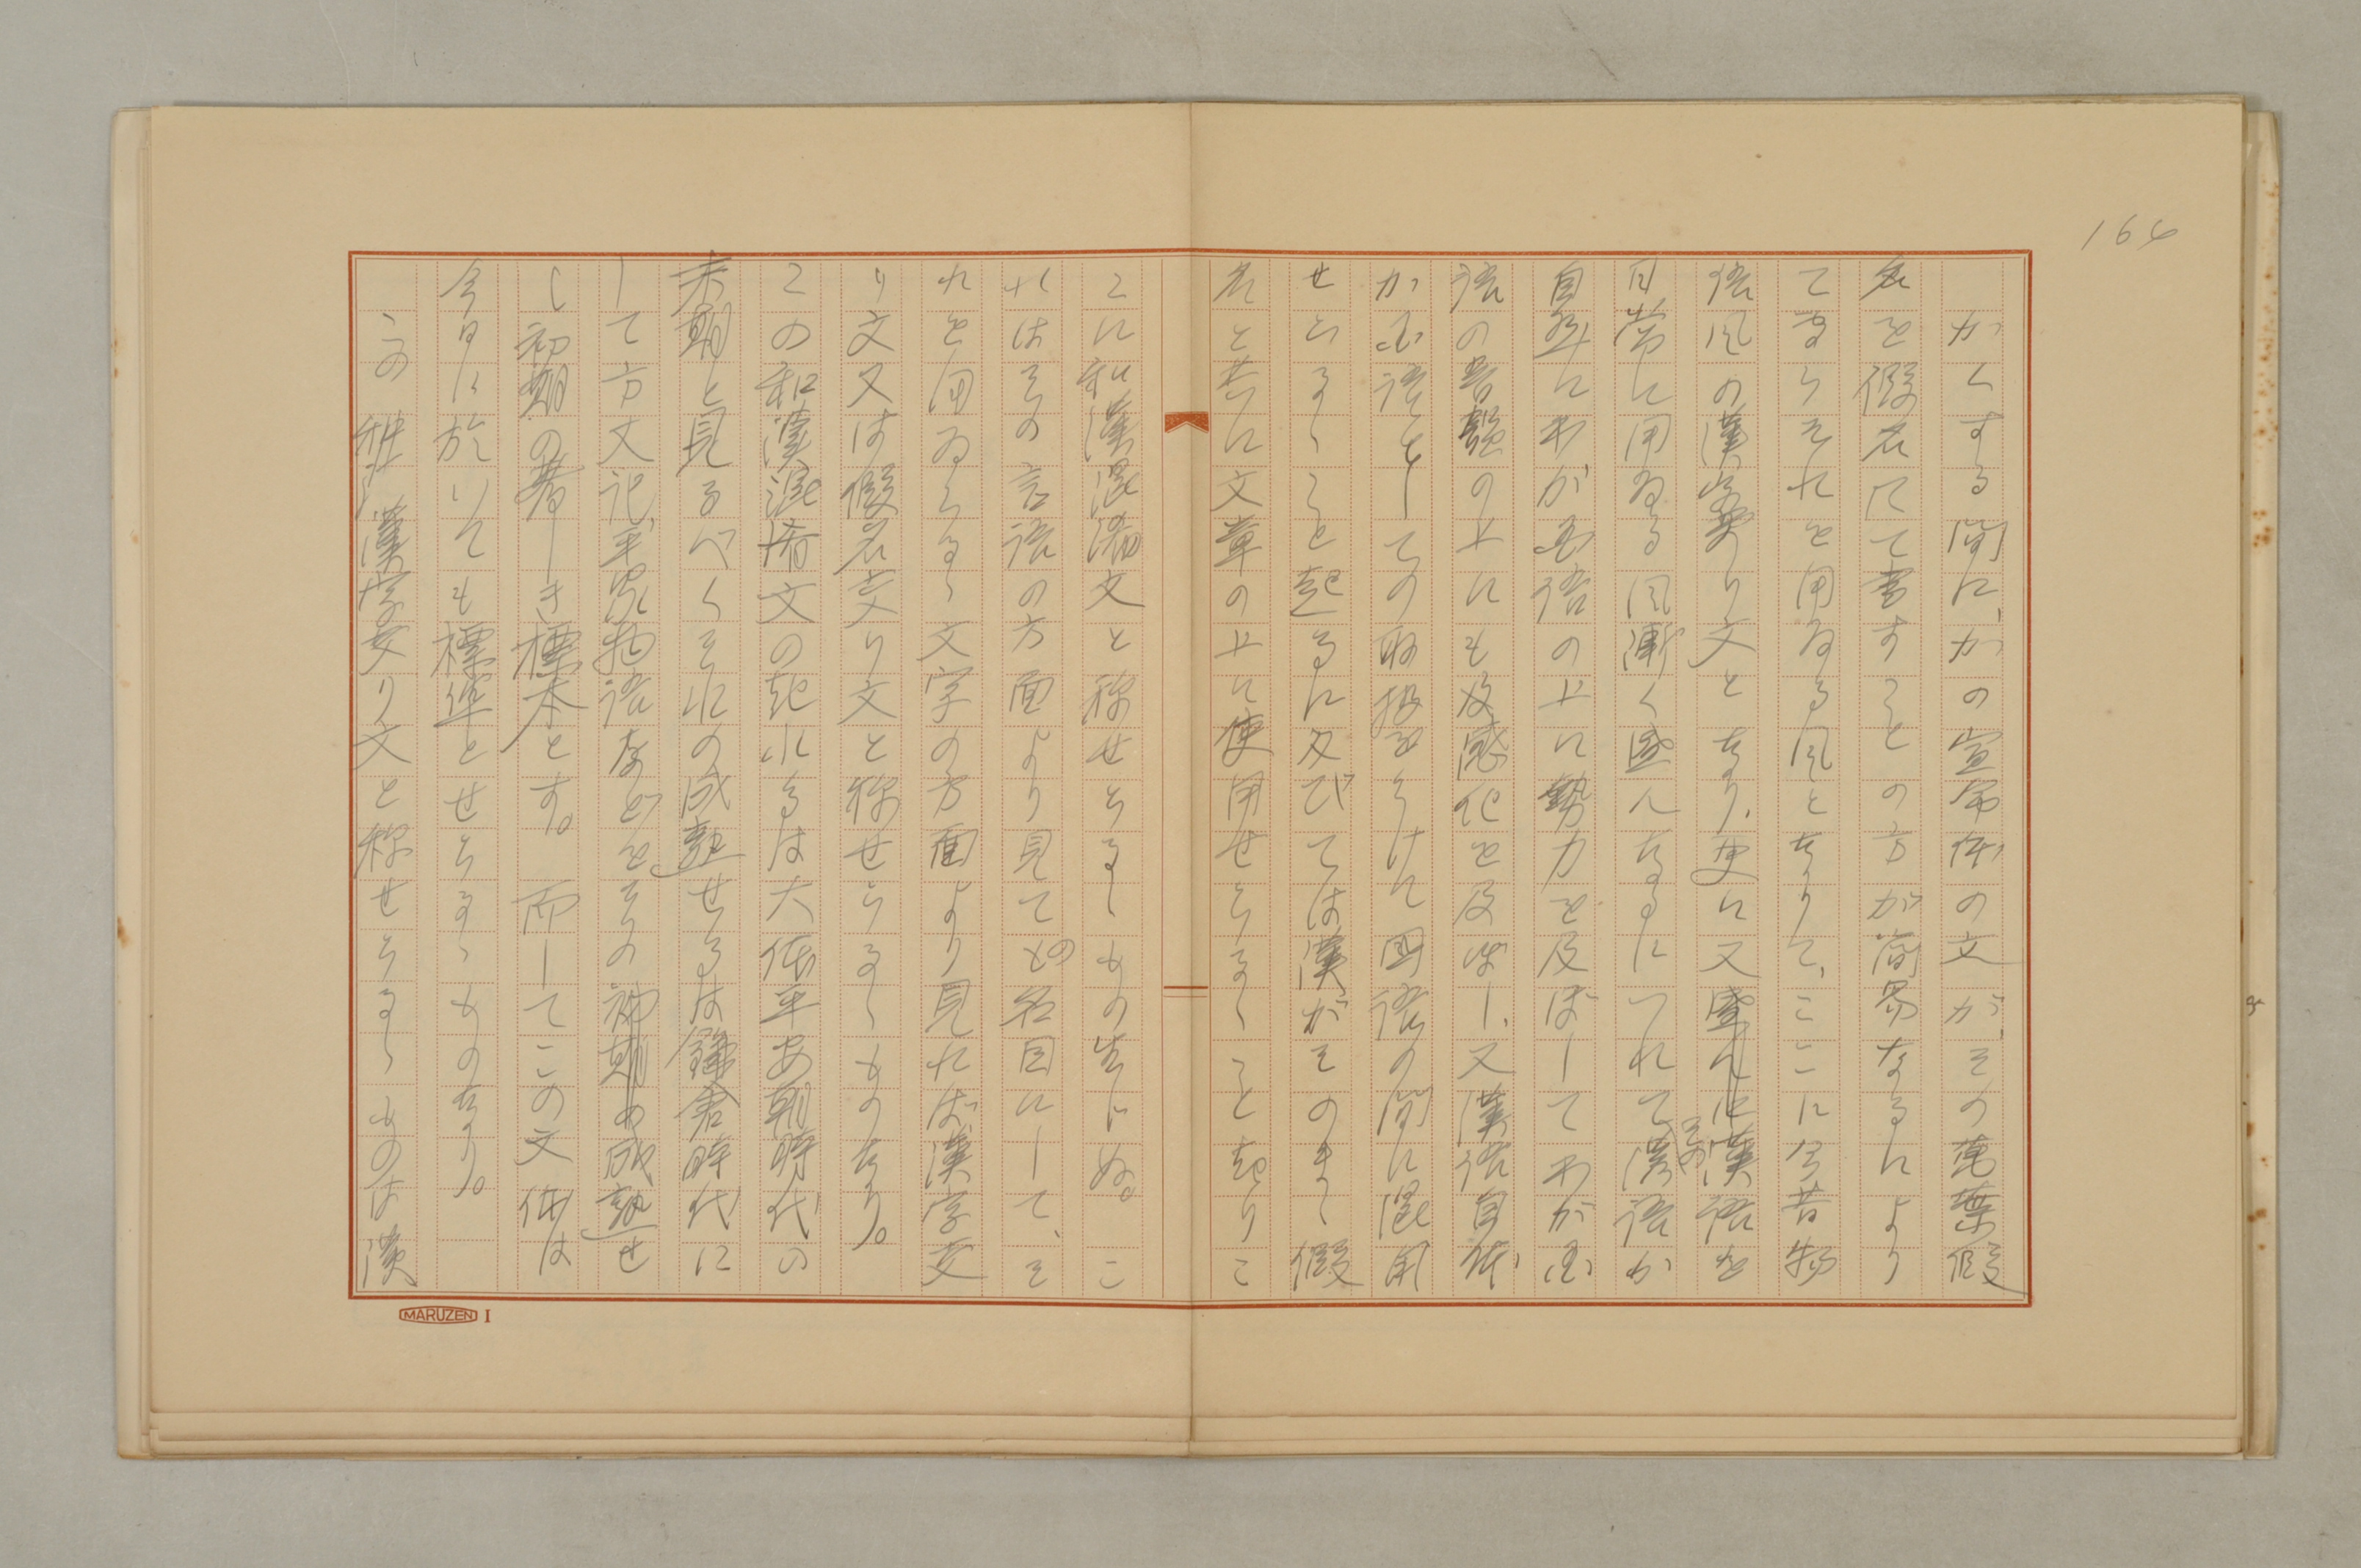 164
かくする間に、かの宣命体の文が、その萬葉假
名を假名にて書すことの方が簡易なるにより
て専らそれを用ゐる風となりて、ここに今昔物
語風の漢字交り文となり、更に又漢語を
日常に用ゐる風漸く盛んなるにつれて漢語が
自然にわが国語の上に勢力を及ぼしてわが国
語の音韻の上にも及感化を及ぼし、又漢語自体
が国語としての取扱をうけ国語の間に混用
せらるゝこと起るに及びては漢がそのまゝ假
名と共に文章の上に使用せらるゝこと起りこ
こに和漢混淆文と称せらるゝもの生じぬ。こ
れはその言語の方面より見てもの名目にして、そ
れを用ゐらるゝ文字の方面より見れば漢字交
り文又は假名交り文と称せらるゝものなり。
この和漢混淆文の起れるは大体平安朝時代の
末期と見るべくそれの成熟せるは鎌倉時代に
して方丈記、平家物語などをその初期の成熟せ
し初期の著しき標本とす。而してこの文体は
今日に於いても標準とせらるゝものなり。
この種漢字交り文と称せらるゝものは漢
MARUZEN I